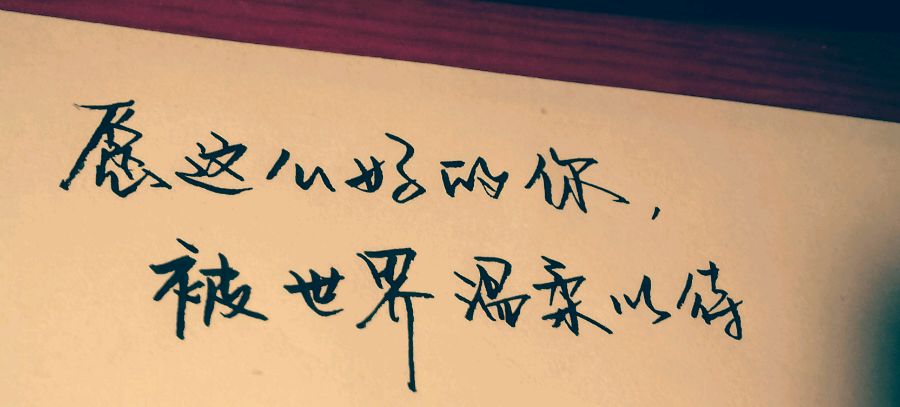 愿这么好的你,
被世界温柔以待